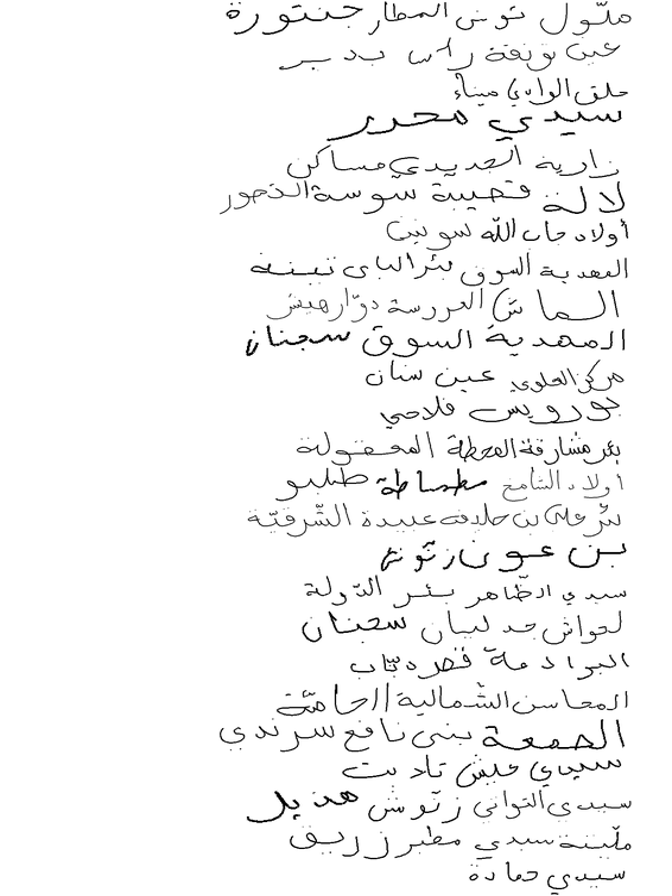 ملّول تونس المطار جنتورة
عين نونفة راس بدير
حلق الوادي ميناء
سيدي محرز
زاوية الجديدي مساكن
لالة قصيبة سوسة الدخور
أولاد جاب الله سونين
المهدية السوق بئر الباي تبينة
الماش العروسة دوّار هيشر
المهدية السوق سجنان
مركز العلوي عين سنان
بورويس فلاحي
بئر مشارقة المحطة المعقولة
أولاد الشامخ مطماطة طلبو
بئر علي بن خليفة عبيدة الشّرقيّة
بن عون زنوش
سيدي الظّاهر بئر الدّولة
لحواش جد ليان سجنان
البرادمة قصر دبّاب
المحاسن الشمالية الحامّة
الجمعة بني نافع سرندي
سيدي عيش تاديت
سيدي التواتي زنوش هذيل
ملّينة سيدي مطير زريق
سيدي حمادة